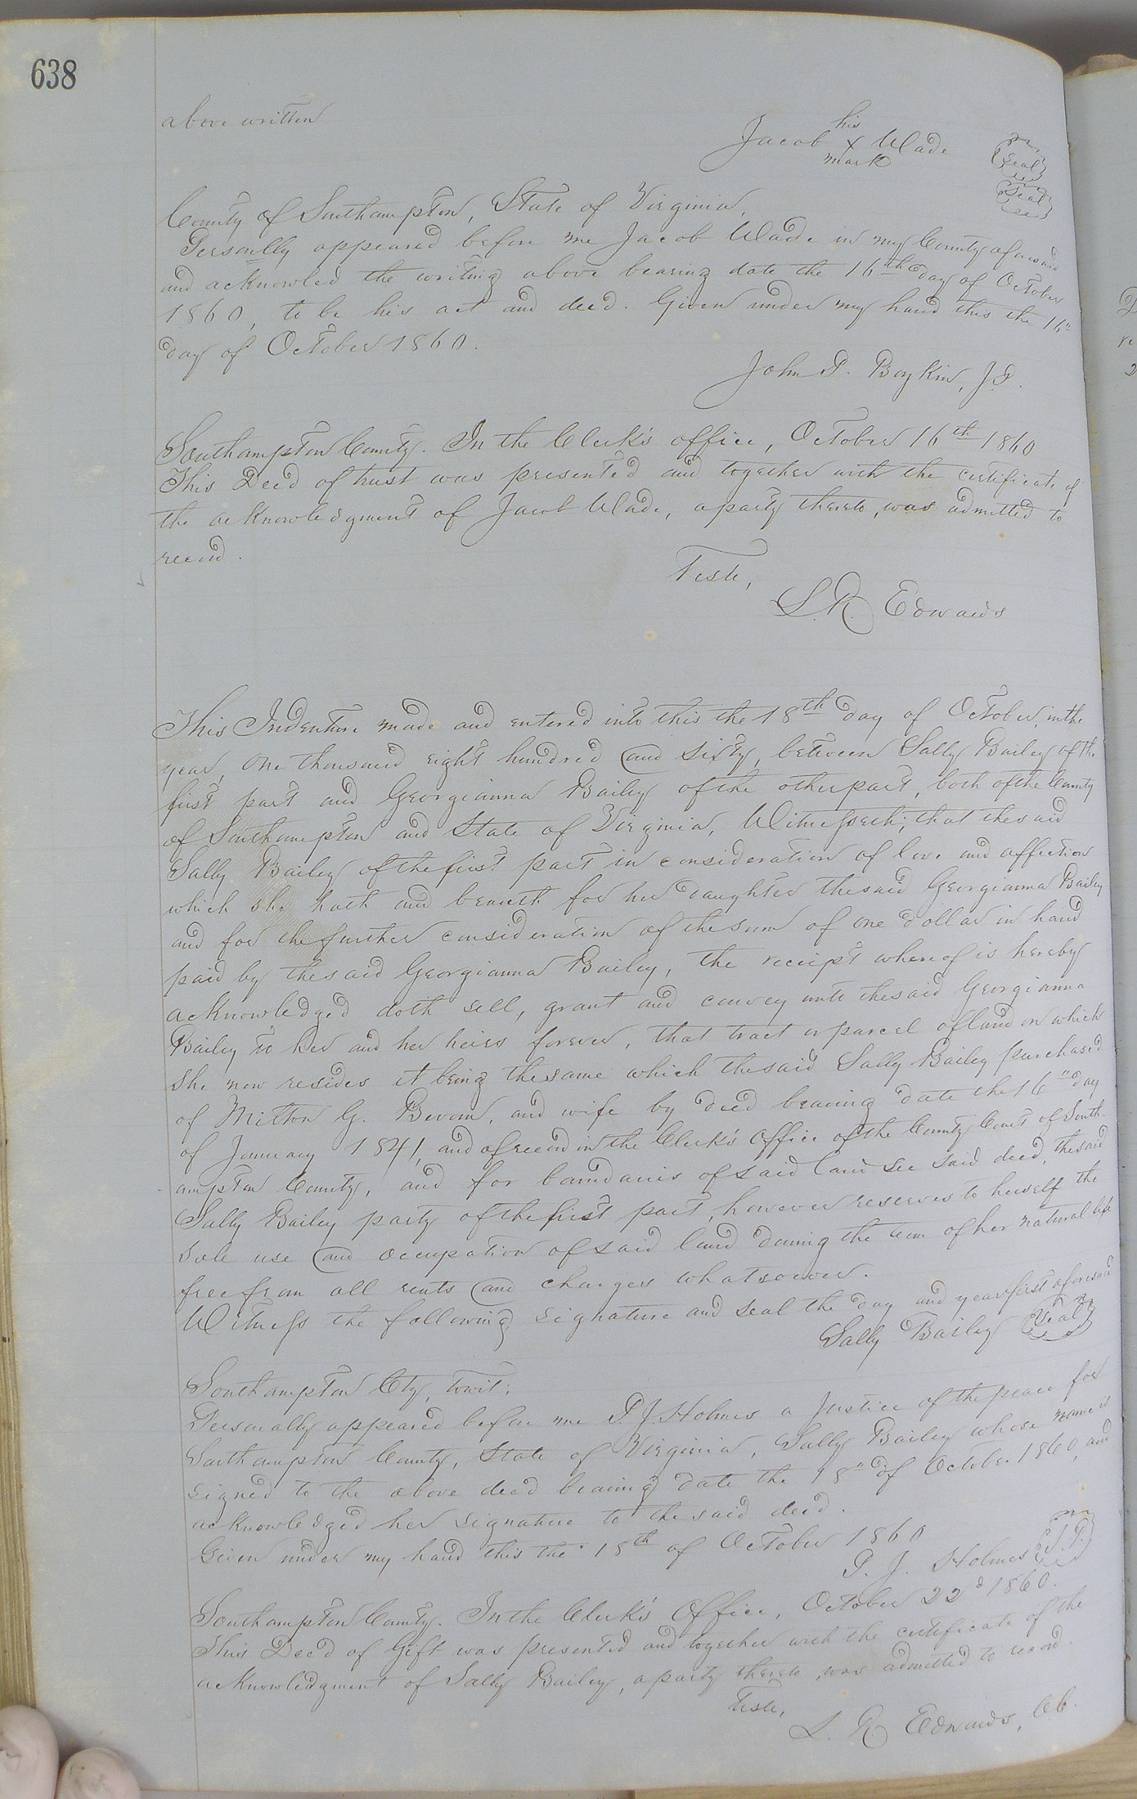 638
above written
his
Jacob x Wade
mark
Seal
Seal
County of Southampton, State of Virginia,
Personlly appeared before me Jacob Wade in my County aforesaid
and acknowled the writing above bearing date the 16th day of October
1860, to be his act and deed. Given under my hand this the 16th
day of October 1860.
John P. Boykin, J.P.
Southampton County. In the Clerk's office, October 16th 1860
This Deed of trust was presented and together with the certificate of
the acknowledgment of Jacob Wade, a party thereto, was admitted to
record.
Teste,
L. R. Edwards
This Indenture made and entered into this the 18th day of October, in the
year, one thousand eight hundred and sixty, between Sally Bailey of the
first part and Georgianna Bailey of the other part, both of the County
of Southampton and State of Virginia, Witnesseth; that the said
Sally Bailey of the first part in consideration of love and affection
which she hath and beareth for her daughter the said Georgianna Bailey
and for the further consideration of the sum of one dollar in hand
paid by the said Georgianna Bailey, the receipt whereof is hereby
acknowledged doth sell, grant and convey unto the said Georgianna
Bailey to her and her heirs forever, that tract or parcel of land on which
she now resides it being the same which the said Sally Bailey purchased
of Milton G. and wife by deed bearing date the 16th day
of January 1841, and of record in the Clerk's Office of the County Court of South-
ampton County, and for boundaries of said land see said deed, the said
Sally Bailey party of the first part, however reserves to herself the
sole use and occupation of said land during the term of her natural life
free from all rents and charges whatsoever.
Witness the following signature and seal the day and year first aforesaid
Sally Bailey Seal
Southampton Cty, towit;
Personally appeared before me P. J. Holmes a Justice of the peace for
Southampton County, State of Virginia, Sally Bailey whose name is
signed to the above deed bearing date the 18th of October 1860, and
acknowledged her signature to the said deed.
Given under my hand this the 18th of October 1860
P. J. Holmes J.P.
Southampton County. In the Clerk's Office, October 22d 1860.
This Deed of Gift was presented and together with the certificate of the
acknowledgment of Sally Bailey, a party thereto, was admitted to record.
Teste,
L. R. Edwards, Clk.